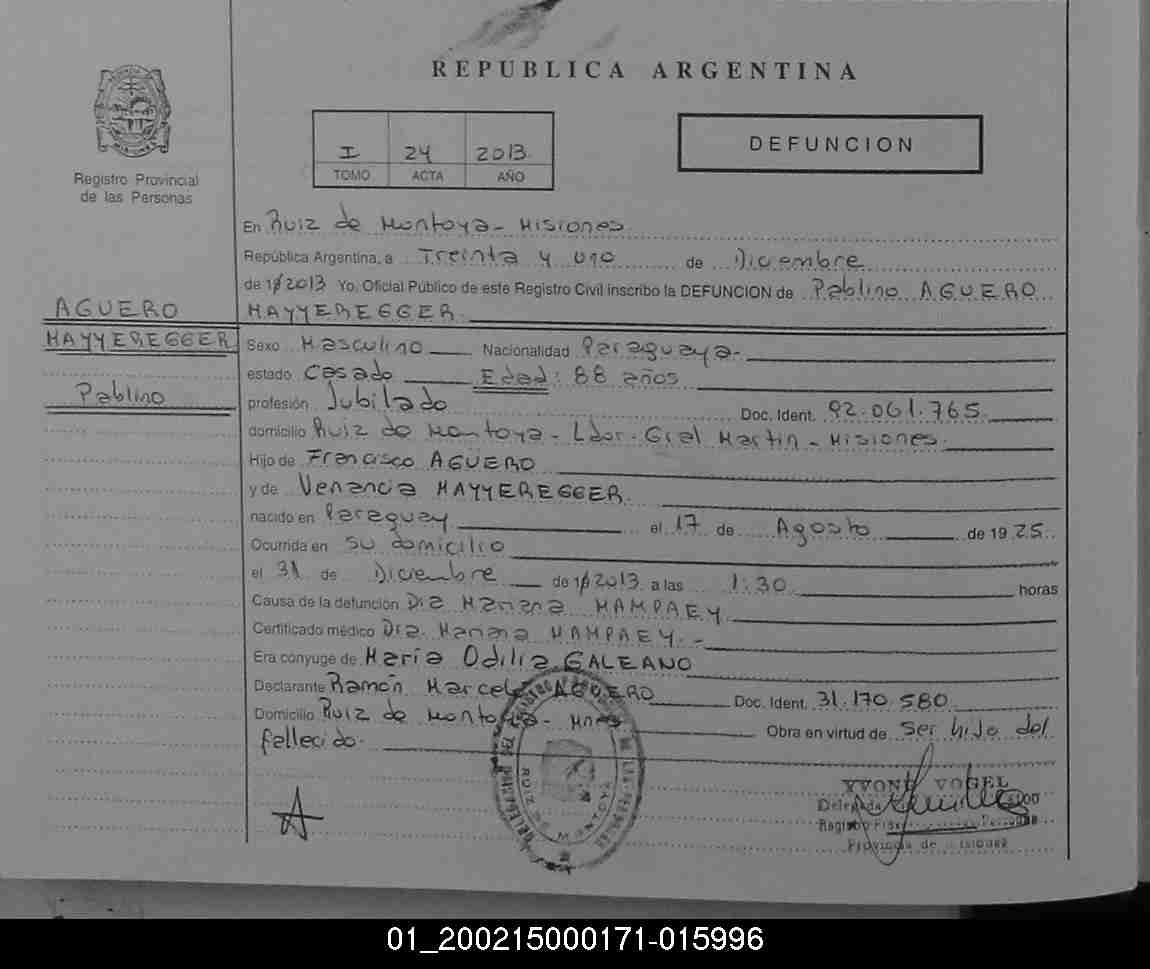 REPUBLICA ARGENTINA
I 24 2013
TOMO ACTA AÑO
DEFUNCION
Registro Provincial
de las Personas
En Ruiz de Montoya - Misiones
República Argentina, a Treinta y uno de Diciembre
de 19 2013 Yo, Oficial Público de este Registro Civil inscribo la DEFUNCION de Pablino AGUERO
MAYYEREGGER
AGUERO
MAYYEREGGER
Pablino
Sexo Masculino Nacionalidad Paraguaya.
estado Casado Edad: 88 años
profesión Jubilado Doc. Ident. 92.061.765
domicilio Ruiz de Montoya - Ldor. Gral Martin - Misiones.
Hijo de Francisco AGUERO
y de Venancia MAYYEREGGER.
nacido en Paraguay el 17 de Agosto de 19 25.
Ocurrida en su domicilio
el 31 de Diciembre de 19 2013 a las 1:30 horas
Causa de la defunción Dra Mariana MAMPAEY
Certificado médico Dra. Mariana MAMPAEY. -
Era cónyuge de María Odilia GALEANO
Declarante Ramón Marcelo AGUERO Doc. Ident. 31.170.580
Domicilio Ruiz de Montoya - Mnes Obra en virtud de ser hijo del
fallecido.
RUIZ DE MONTOYA
YVONE VOGEL
Delegada
Provincia de Misiones
01_200215000171-015996